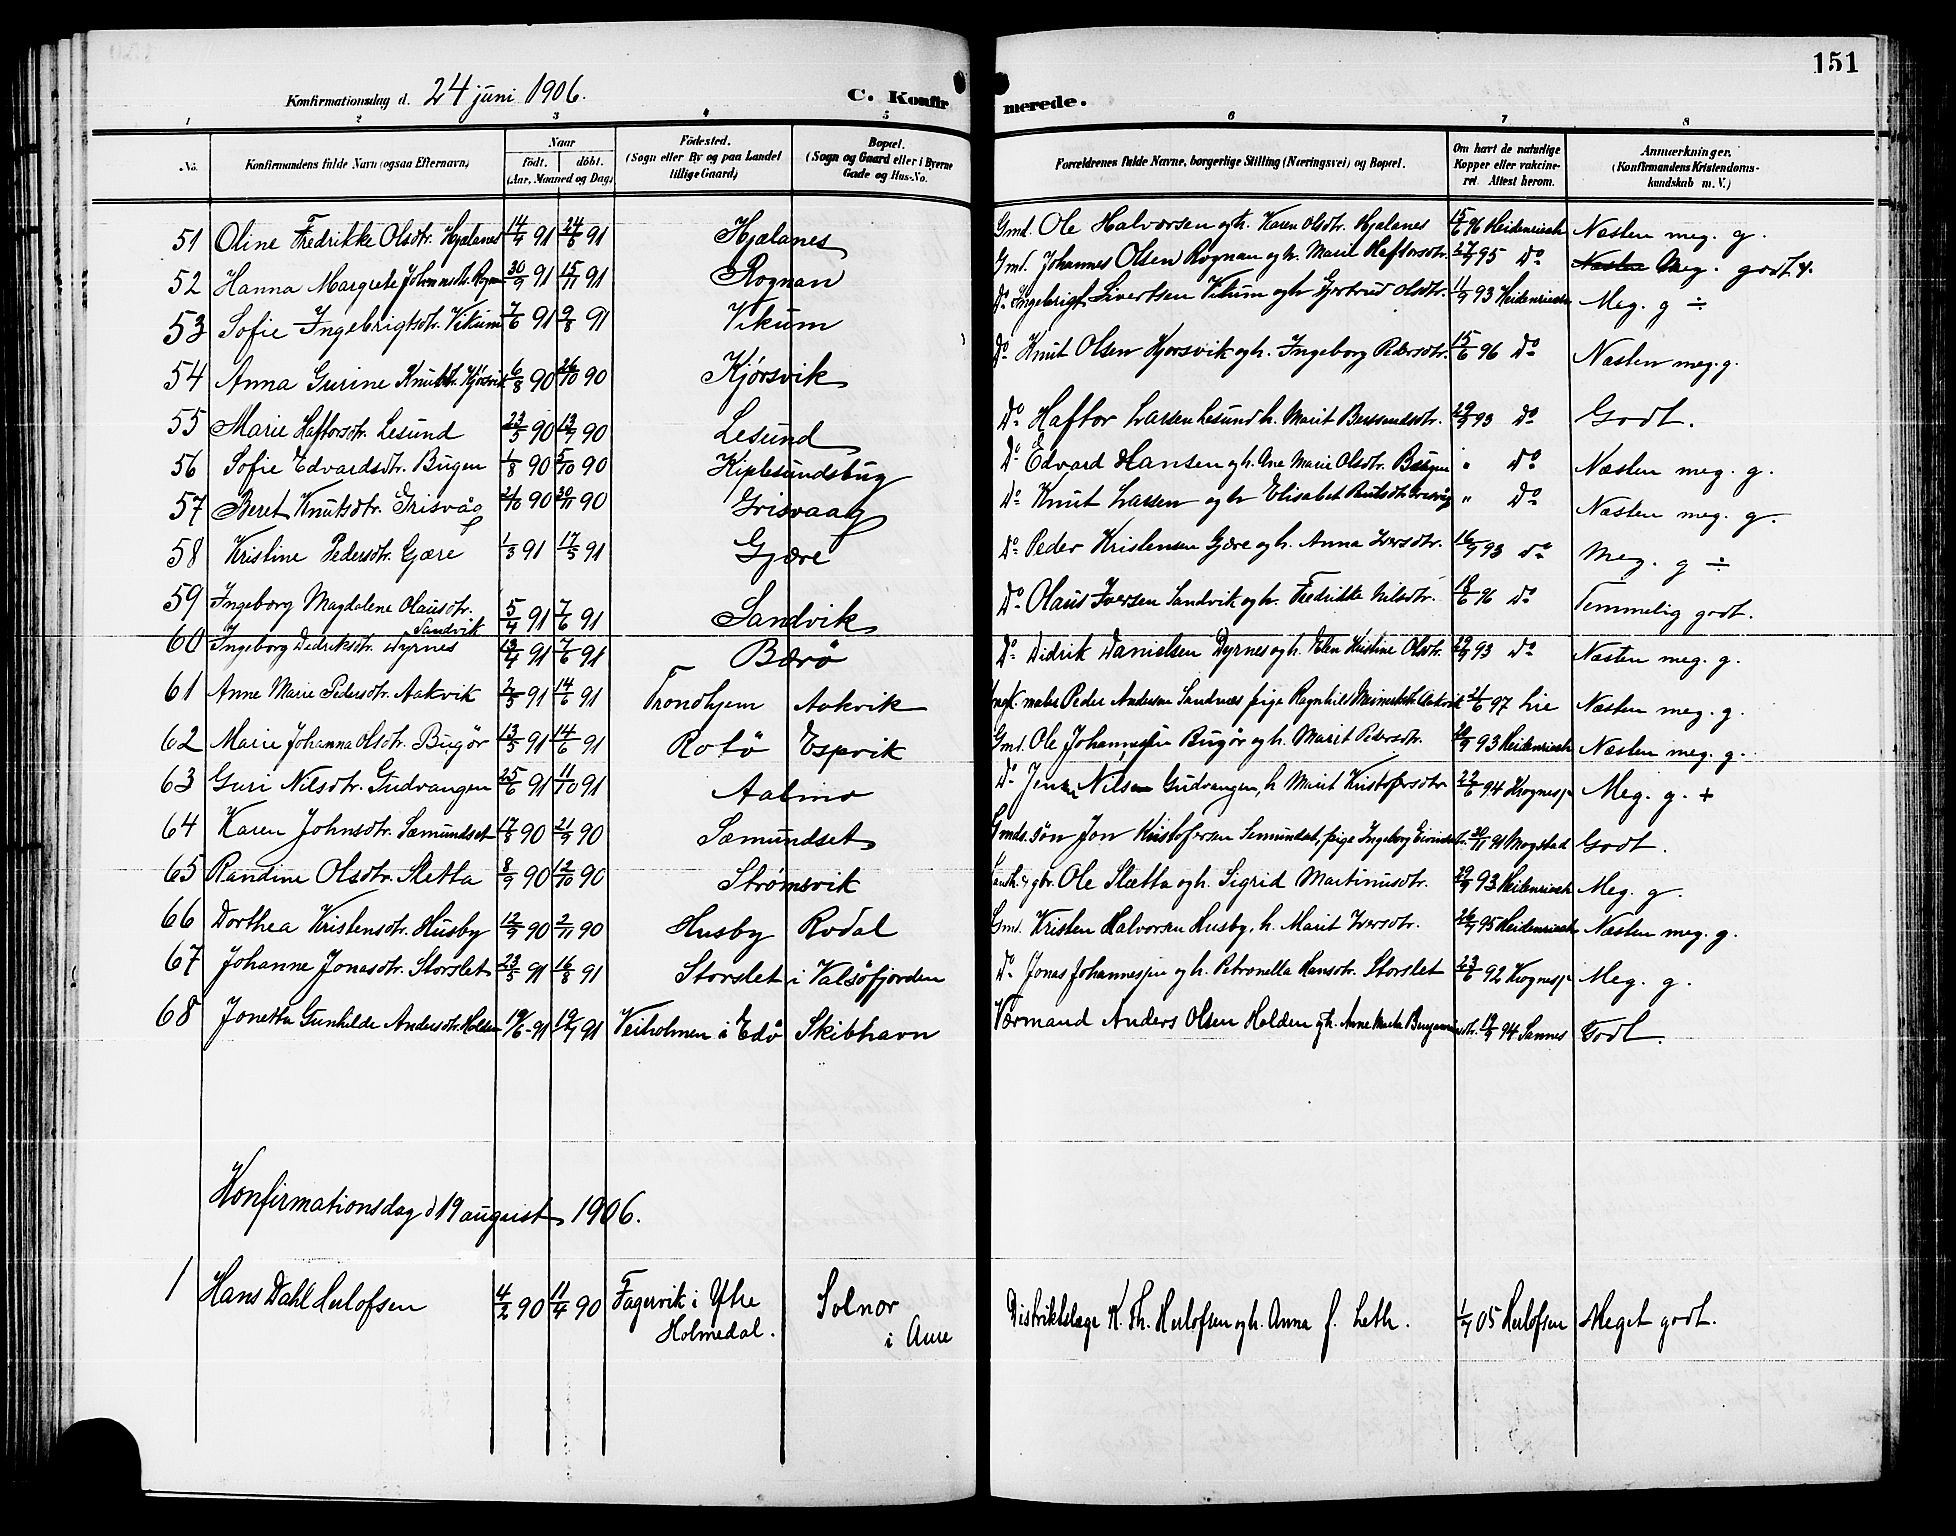 151
Konfirmationsdag d. 24 juni 1906. C. Konfirmerede.
1 2 3 4 5 6 7 8
No. Konfirmandens fulde Navn (ogsaa Efternavn) Naar født. døbt. (Aar, Maaned og Dag) Fødested. (Sogn eller By og paa Landet tillige Gaard) Bopæl. (Sogn og Gaard eller i Byerne Gade og Hus-No. Forældrenes fulde Navne, borgerlige Stilling (Næringsvei) og Bopæl. Om havt de naturlige Kopper eller vaccineret. Attest herom. Anmærkninger. (Konfirmandens Kristendomskundskab m. V.)
51 Oline Fredrikke Olsdtr. Hjelanes 14/4 91 24/6 91 Hjelanes Gmd. Ole Halvorsen og h. Karen Olsdtr. Hjelanes 15/6 96 Heidenreich Næsten meg. g.
52 Hanna Margrete Johannesdtr. Rognan 30/9 91 15/11 91 Rognan Gmd. Johannes Olsen Rognan og h. Marit Haftorsdtr. 27/7 95 Do Næsten Meg. godt
53 Sofie Ingebrigtsdtr. Vikum 7/6 91 9/8 91 Vikum Do Ingebrigt Sivertsen Vikum og h Gjertrud Olsdtr. 11/9 93 Heidenreich Meg. g ÷
54 Anna Gurine Knutsdtr. Kjørsvik 6/8 90 26/10 90 Kjørsvik Do Knut Olsen Kjørsvik og h. Ingeborg Pedersdtr. 15/6 96 Do Næsten meg. g.
55 Marie Haftorsdtr. Lesund 23/5 90 13/7 90 Lesund Do Haftor Larsen Lesund h. Marit Berssendtr. 29/9 93 Do Godt.
56 Sofie Edvardsdtr. Bugen 1/8 90 5/10 90 Kiplesundsbug Do Edvard Hansen og h. Ane Marie Olsdtr. Bugen " Do Næsten meg. g.
57 Beret Knutsdtr. Grisvåg 21/10 90 30/11 90 Grisvaag Do Knut Larsen og h Elisabet Grisvåg " Do Næsten meg. g.
58 Kristine Pedersdtr. Gjære 1/3 91 17/5 91 Gjære Do Peder Kristensen Gjære og h. Anna Iversdtr. 16/9 93 do Meg. g ÷
59 Ingeborg Magdalene Olausdtr. Sandvik 5/4 91 7/6 91 Sandvik Do Olaus Iversen Sandvik og h. Fredrikke Nilsdtr. 18/6 96 do Temmelig godt.
60 Ingeborg Dedriksdtr. Dyrnes 13/4 91 7/6 91 Bærø Do Didrik Danielsen Dyrnes og h. Elen Kristine Olsdtr. 29/9 93 do Næsten meg. g.
61 Anne Marie Pedersdtr. Aakvik 2/5 91 14/6 91 Trondhjem Aakvik Ungk. maler Peder Andersen Sandnæs pige Ragnhild Aakvik 21/6 97 Lie Næsten meg. g.
62 Marie Johanna Olsdtr. Bugør 13/5 91 14/6 91 Rotø Espvik Gmd. Ole Johannessen Bugør og h. Marit Pedersdtr. 28/9 93 Heidenreich Næsten meg. g.
63 Guri Nilsdtr. Gudvangen 25/6 91 11/10 91 Aalmo Do Jens Nilsen Gudvangen, h Marit Kristofersdtr 22/6 94 Krognesp Meg. g. +
64 Karen Johnsdtr. Sæmundset 17/8 90 21/9 90 Sæmundset Gmds. søn Jon Kristofersen Semundset, pige Ingeborg 91 Mogstad Godt.
65 Randine Olsdtr. Sletta 8/9 90 12/10 90 Strømsvik Ole Slætta og h. Sigrid Martinusdtr. 29/9 93 Heidenreich Meg. g.
66 Dorthea Kristensdtr. Husby 12/9 90 2/11 90 Husby Rodal Gmd. Kristen Halvorsen Husby, h. Marit Iversdtr. 26/7 95 Heidenreich Næsten meg. g.
67 Johanne Jonasdtr. Storslet 23/5 91 16/8 91 Storslet i Valsøfjorden Do Jonas Johannessen og h. Petronella Hansdtr. Storslet 23/6 92 Krognesp Meg. g.
68 Jonetta Gunhilde Andersdtr. Holden 19/6 91 19/7 91 Veiholmen i Edø Skibhavn Vormand Anders Olsen Holden og h. Anne Marta Benjaminsdtr. 19/9 94 Sannes Godt.
Konfirmationsdag d 19 august 1906.
1 Hans Dahl Herlofsen 4/2 90 11/4 90 Fagervik i Ytre Holmedal. Solnor i Aure Distriktslæge K. Th. Herlofsen og h. Anna f. Leth. 1/7 05 Herlofsen Meget godt.